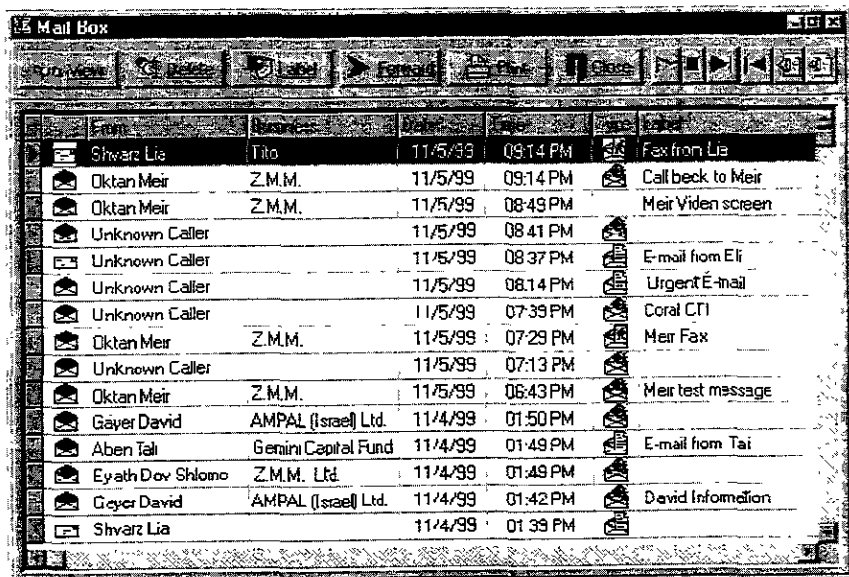 Mail Box
Delete Label Forward Print Close
From Business Date Time Label
Shvarz Lia Tito 11/5/99 09:14 PM Fax from Lia
Oktan Meir Z.M.M. 11/5/99 09:14 PM Call beck to Meir
Oktan Meir Z.M.M. 11/5/99 08:49 PM Meir Viden screen
Unknown Caller 11/5/99 08:41 PM
Unknown Caller 11/5/99 08:37 PM E-mail from Eli
Unknown Caller 11/5/99 08:14 PM Urgent E-mail
Unknown Caller 11/5/99 07:39 PM Coral CTI
Oktan Meir Z.M.M. 11/5/99 07:29 PM Meir Fax
Unknown Caller 11/5/99 07:13 PM
Oktan Meir Z.M.M. 11/5/99 06:43 PM Meir test message
Gayer David AMPAL (Israel) Ltd. 11/4/99 01:50 PM
Aben Tali Gemini Capital Fund 11/4/99 01:49 PM E-mail from Tai
Eyath Dov Shlomo Z.M.M. Ltd. 11/4/99 01:49 PM
Geyer David AMPAL (Israel) Ltd. 11/4/99 01:42 PM David Information
Shvarz Lia 11/4/99 01:39 PM